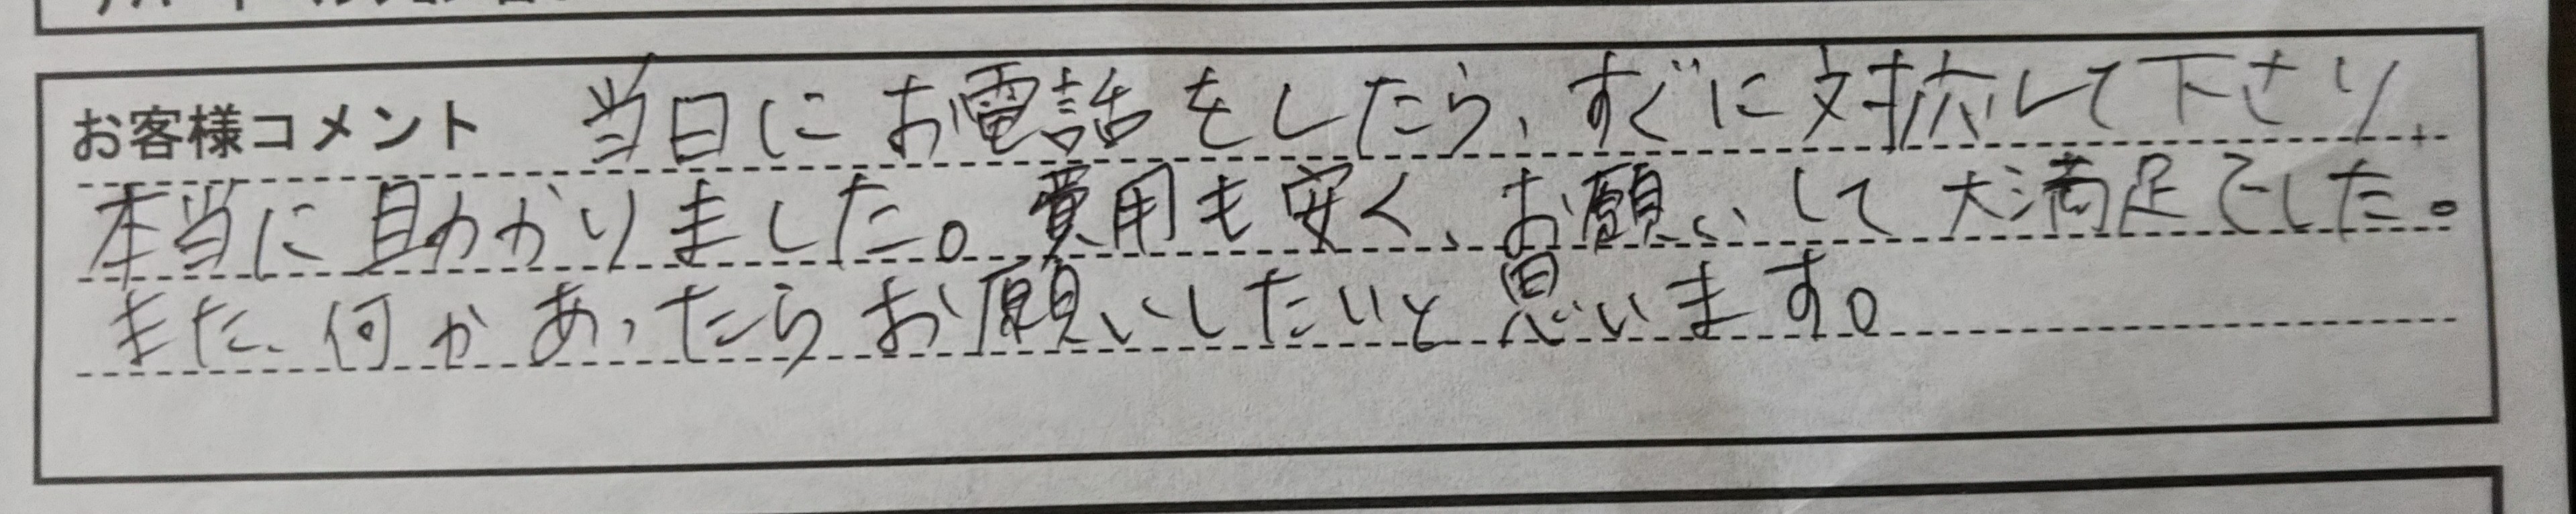 お客様コメント 当日にお電話をしたら、すぐに対応して下さり、
本当に助かりました。費用も安く、お願いして大満足でした。
また、何かあったらお願いしたいと思います。